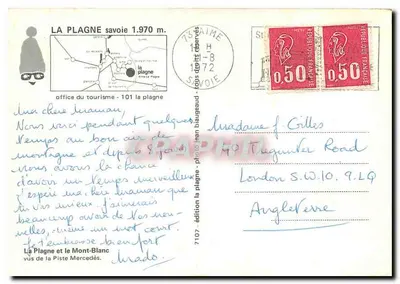 LA PLAGNE savoie 1.970 m.
la plagne
office du tourisme - 101 la plagne
73 AIME
H
-8
1972
SAVOIE
0,50
0,50
Ma chère Maman,
Nous voici pendant quelques
temps au bon air de
montagne et
nous avons la chance
d'avoir un temps merveilleux
J'espère ma chère maman que
tu vas mieux. J'aimerais
beaucoup avoir de tes nou-
velles, même un mot court.
Je t'embrasse bien fort
Mado.
La Plagne et le Mont-Blanc
vus de la Piste Mercedès.
7107 - édition la plagne -
Madame J. Gilles
Tregunter Road
London S.W.10. 9.LQ
Angleterre